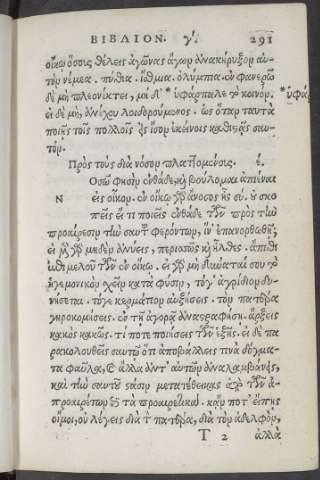 ΒΙΒΛΙΟΝ. γ'. 291
οἴκῳ ὅσοις θέλεις ἀγῶνας ἄγων ἀνακήρυξον αὑ-
τὸν νέμεα. πύθια. ἴσθμια. ὀλύμπια. ἐν φανερῷ
δὲ μὴ πλεονέκτει, μὴ δ' * ὑφάρπαλε τὸ κοινόν. *ὑφάρ
εἰ δὲ μὴ, ἀνέχου λοιδορούμενος. ὡς ὅταν ταυτὰ
ποιῇς τοῖς πολλοῖς εἰς ἴσον ἐκείνοις καθιστᾷς σαυ-
τόν.
Πρὸς τοὺς διὰ νόσον πλαττομένους. έ.
Οσῶ φησὶν ἐνθάδε, καὶ βούλομαι ἀπιέναι
Ν εἰς οἶκον. ἐν οἴκῳ γὰρ ἄνοσος ἦς σύ. οὐ σκο
πεῖς εἴ τι ποιεῖς ἐνθάδε τῶν πρὸς τὴν
προαίρεσιν τὴν σαυτοῦ φερόντων, ἵν' ἐπανορθωθῇ;
εἰ μὲν γὰρ μηδὲν ἀνύεις, περισσῶς καὶ ἦλθες. ἄπιθι
ἐπιμελοῦ τῶν ἐν οἴκῳ. εἰ γὰρ μὴ δύναταί σου τὸ
ἡγεμονικὸν σχεῖν κατὰ φύσιν, τό γ' ἀγρίδιον δυ-
νήσεται. τό γε κερμάτιον αὐξήσεις. τὸν πατέρα
γηροκομήσεις. ἐν τῇ ἀγορᾷ ἀναστραφήσῃ. ἄρξεις
κακὸς κακῶς. τί ποτε ποιήσεις τῶν ἑξῆς. εἰ δὲ πα
ρακολουθεῖς σαυτῷ ὅτι ἀποβάλλεις τινὰ δόγμα-
τα φαῦλα, καὶ ἄλλα ἀντ' αὐτῶν ἀναλαμβάνεις,
καὶ τὴν σαυτοῦ στάσιν μετατέθεικας ἀπὸ τῶν ἀ-
προαιρέτων ἐπὶ τὰ προαιρετικά. κἄν ποτ' εἴπῃς
οἴμοι, οὐ λέγεις διὰ τὸν πατέρα, διὰ τὸν ἀδελφόν,
T 2 ἀλλὰ